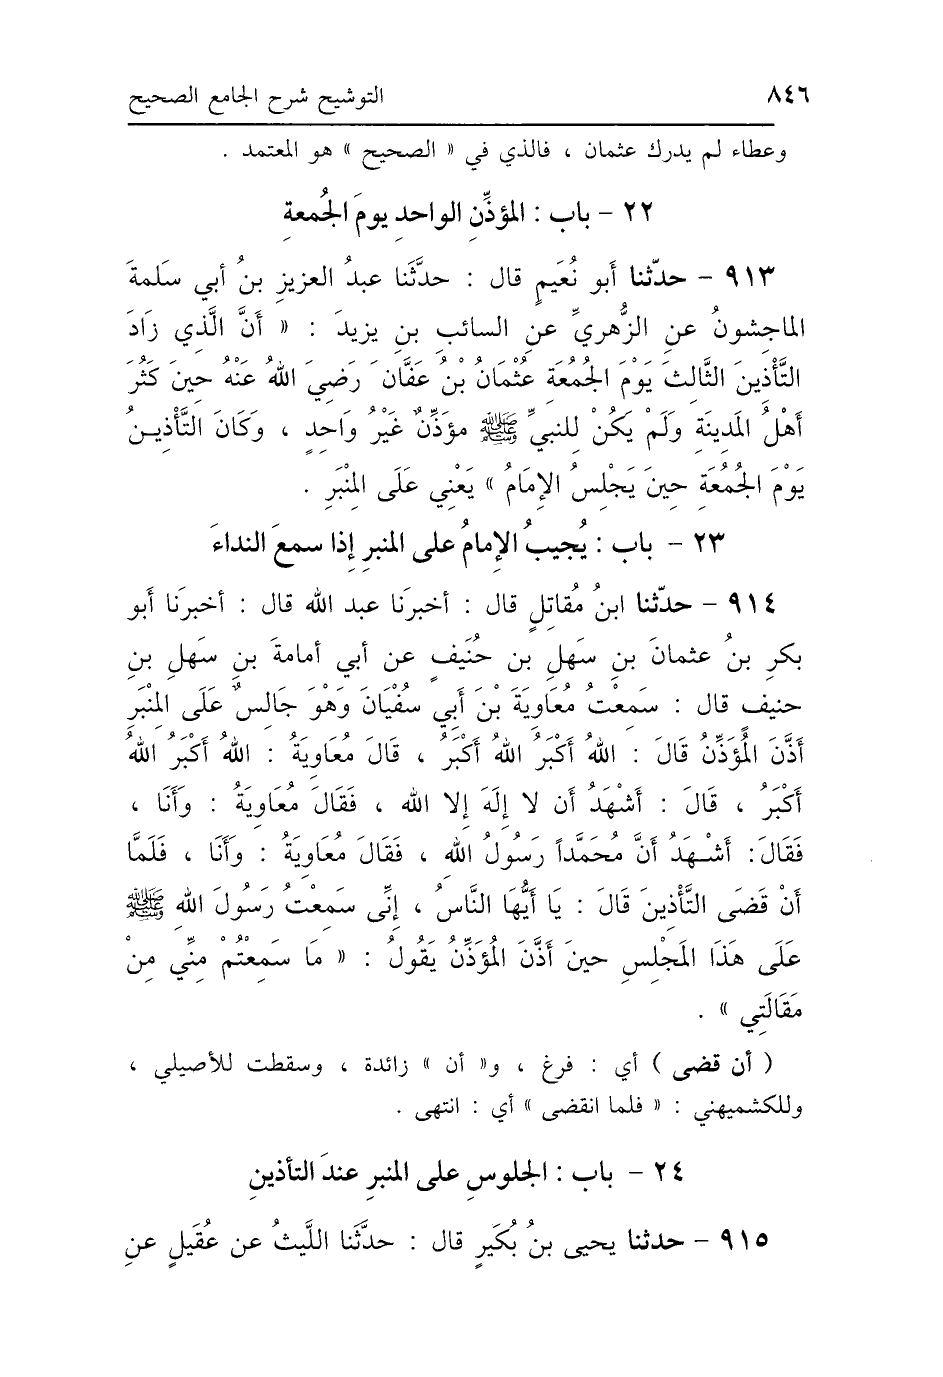 ٨٤٦ التوشيح شرح الجامع الصحيح
وعطاء لم يدرك عثمان ، فالذي في « الصحيح » هو المعتمد .
٢٢ – باب : المؤذِّنِ الواحدِ يومَ الجُمعةِ
٩١٣ – حدّثنا أبو نُعَيمٍ قال : حدَّثَنا عبدُ العزيزِ بنُ أبي سلَمةَ
الماجشونُ عن الزُّهريِّ عنِ السائبِ بنِ يزيدَ : « أَنَّ الَّذي زَادَ
التَّأْذِينَ الثَّالثَ يَوْمَ الجُمُعَةِ عُثْمَانُ بْنُ عفَّانَ رَضِيَ اللهُ عَنْهُ حِينَ كَثُرَ
أَهْلُ المَدِينَةِ وَلَمْ يَكُنْ لِلنبيِّ ﷺ مؤَذِّنٌ غَيْرُ وَاحِدٍ ، وَكَانَ التَّأْذِيـنُ
يَوْمَ الجُمُعَةِ حِينَ يَجْلِسُ الإِمَامُ » يَعْنِي عَلَى المِنْبَرِ .
٢٣ – باب : يُجيبُ الإمامُ على المنبرِ إذا سمعَ النداءَ
٩١٤ – حدّثنا ابنُ مُقاتلٍ قال : أخبرَنا عبد الله قال : أخبرَنا أبو
بكرِ بنُ عثمانَ بنِ سهْلِ بنِ حُنَيفٍ عن أبي أمامةَ بنِ سَهلِ بنِ
حنيفٍ قال : سَمِعْتُ مُعَاوِيَةَ بْنَ أَبي سُفْيَانَ وَهْوَ جَالِسٌ عَلَى المِنْبَرِ
أَذَّنَ المُؤَذِّنُ قَالَ : اللهُ أَكْبَرُ اللهُ أَكْبَرُ ، قَالَ مُعَاوِيَةُ : اللهُ أَكْبَرُ اللهُ
أَكْبَرُ ، قَالَ : أَشْهَدُ أَن لا إِلَهَ إِلا الله ، فَقَالَ مُعَاوِيَةُ : وَأَنَا ،
فَقَالَ: أَشْـهَدُ أَنَّ مُحَمَّداً رَسُولُ اللهِ ، فَقَالَ مُعَاوِيَةُ : وَأَنَا ، فَلَمَّا
أَنْ قَضَى التَّأْذِينَ قَالَ : يَا أَيُّهَا النَّاسُ ، إِنِّى سَمِعْتُ رَسُولَ اللهِ ﷺ
عَلَى هَذَا المَجْلِسِ حِينَ أَذَّنَ المُؤَذِّنُ يَقُولُ : « مَا سَمِعْتُمْ مِنِّي مِنْ
مَقَالَتِي » .
( أن قضى ) أي : فرغ ، و« أن » زائدة ، وسقطت للأصيلي ،
وللكشميهني : « فلما انقضى » أي : انتهى .
٢٤ – باب : الجلوسِ على المنبرِ عندَ التأذينِ
٩١٥ – حدثنا يحيى بنُ بُكَيرٍ قال : حدَّثَنا اللَّيثُ عن عُقَيلٍ عنِ